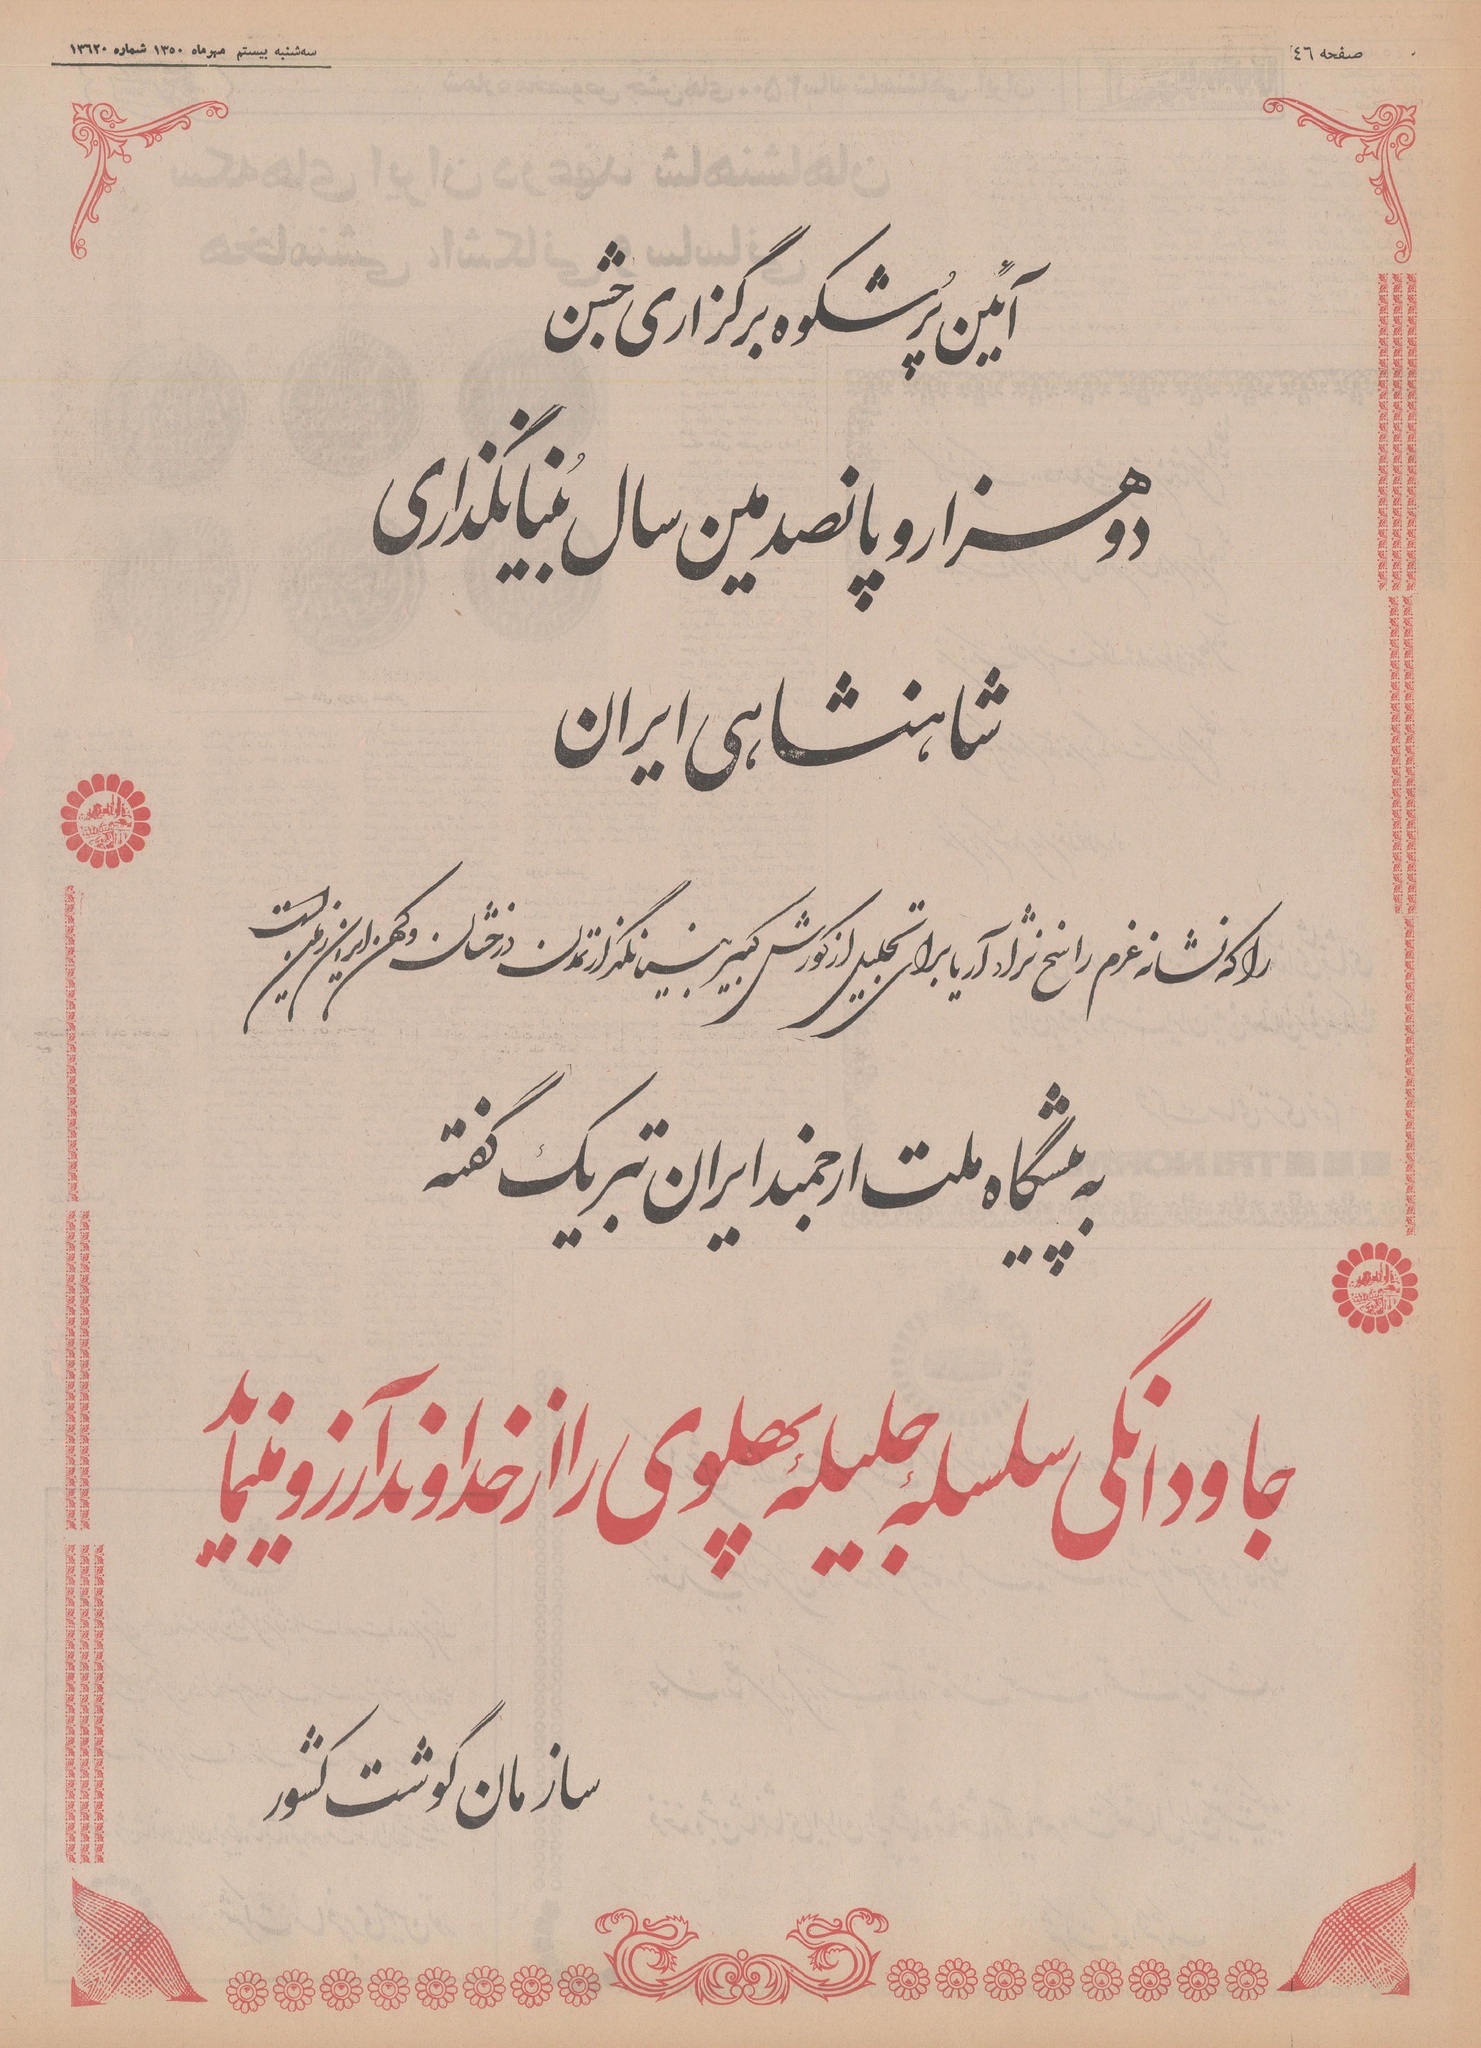 صفحه ٤٦
سه‌شنبه بیستم مهرماه ۱۳۵۰ شماره ۱۳۶۲۰
آئین پُرشکوه برگزاری جشن
دوهزار و پانصدمین سال بُنیانگذاری
شاهنشاهی ایران
را که نشانه عزم راسخ نژاد آریا برای تجلیل از کورش کبیر بنیانگذار تمدن درخشان و کهن ایران زمین است
به پیشگاه ملت ارجمند ایران تبریک گفته
جاودانگی سلسلهٔ جلیلهٔ پهلوی را از خداوند آرزو مینماید
سازمان گوشت کشور